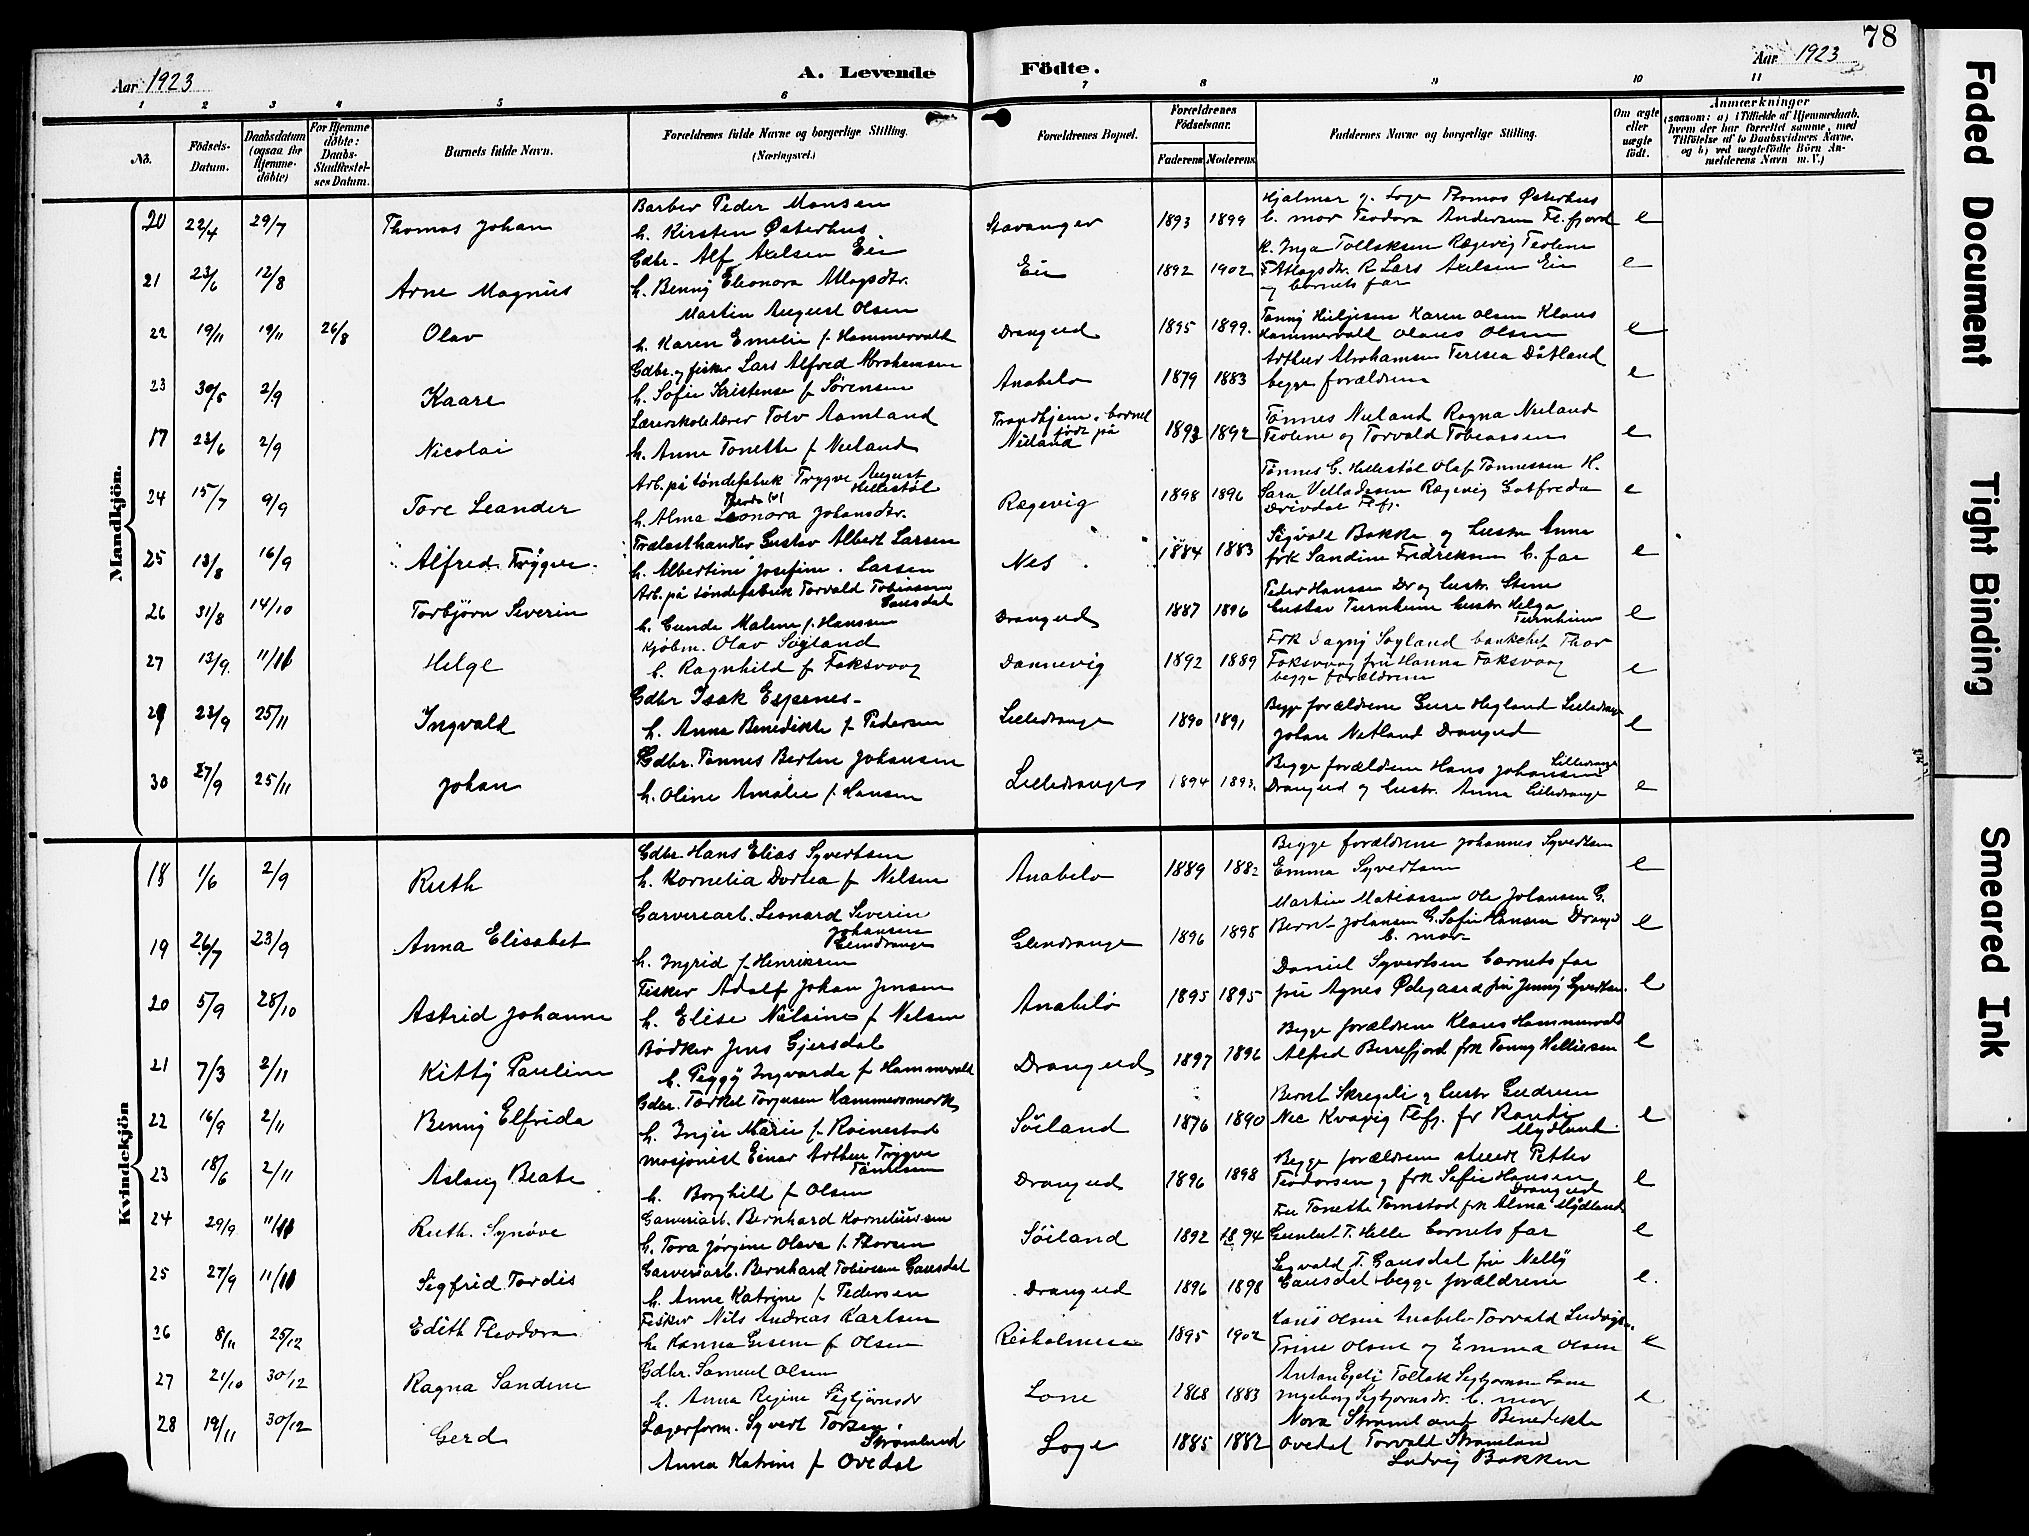 78
Aar 1923
A. Levende
Födte.
Aar 1923
1 2 3 4 5 6 7 8 9 10 11
No.
Födsels-Datum.
Daabsdatum (ogsaa for Hjemme-döbte)
For Hjemme-döbte: Daabs-Stadfæstel-ses Datum.
Barnets fulde Navn.
Forældrenes fulde Navne og borgerlige Stilling. (Næringsvei.)
Forældrenes Bopæl.
Forældrenes Födselsaar.
Faderens
Moderens
Faddernes Navne og borgerlige Stilling.
Om ægte eller uægte födt.
Anmærkninger
(saasom: a) i Tilfælde af Hjemmedaab, hvem der har forrettet samme, med Tilföielse af to Daabsvidners Navne. og b) ved uegtefödte Börn An-melderens Navn m. V.)
Mandkjön.
20 22/4 29/7 Thomas Johan
Barber Peder Monsen
h. Kirsten Østerhus
Stavanger 1893 1899
Hjalmar og Loge Thomas Østerhus
b. mor Teodora Andersen Fl.fjord e
21 23/6 12/8 Arne Magnus
Gdbr. Alf Axelsen Eie
h. Benny Eleonora Atlagsdtr.
Eie 1892 1902
K. Inga Tollaksen Rægevig Teoline
Atlagsdtr. R Lars Axelsen Eie
og barnets far e
22 19/11 19/11 26/8 Olav
Martin August Olsen
h. Karen Emelie f. Hammervald
Drangeid 1895 1899.
Tonny Karen Olsen Klaus
Hammervald Olaus Olsen e
23 30/5 2/9 Kaare
Gdbr. og fisker Lars Alfred Abrahamsen
h. Sofie Kristense f Sørensen
Anabelø 1879 1883
Arthur Abrahamsen Teresea Dåtland
begge forældrene e
17 23/6 2/9 Nicolai
Lærerskolelærer Tolv Aamland
h. Anne Tonette f Neeland
Trondhjem, barnet
født på
Neeland 1892 1892
Tønnes Neeland Ragna Neeland
Teoline og Torvald Tobiassen e
24 15/7 9/9 Tore Leander
Arb. på tøndefabrik Trygve August
Hellestøl
h. Alma Leonora Johansdtr.
Rægevig 1898 1896
Tønnes G. Hellestøl Olaf Tønnessen H.
Sara Rægevig Gotfreda
Drivdal Flfj. e
25 13/8 16/9 Alfred Trygve
Trælasthandler Gustav Albert Larsen
h. Albertine Josefine Larsen
Nes 1884 1883
Sigvald Bakke og hustru Anna
frk Sandine Fredriksen b. far e
26 31/8 14/10 Torbjørn Severin
Arb. på tøndefabrik Torvald Tobiassen
Gausdal
h. Gunda Malene f. Hanssen
Drangeid 1887 1896
Peder Hanssen Dr og hustr. Stine
Gustav Turnheim hustr. Helga
Turnheim e
27 13/9. 11/11 Helge
Kjøbm. Olav Søyland
h. Ragnhild f Foksvaag
Dannevig 1892 1889
Frk Dagny Søyland bankchef Thor
Foksvaag fru Hanna Foksvaag
begge forældrene e
29 23/9 25/11 Ingvald
Gdbr Isak Espenes
h. Anna Benedikte f Pedersen
Lilledrange 1890 1891
Begge forældrene Gure Hegland Lilledrange
Johan Netland Drangeid e
30 27/9 25/11 Johan
Gdbr. Tønnes Bertin Johansen
h. Oline Amalie f. Hansen
Lilledrange 1894 1893.
Begge forældrene Hans Johansen Lilledrange
Drangeid og hustr. Anna Lilledrange e
Kvindekjön
18 1/6 2/9 Ruth
Gdbr. Hans Elias Syvertsen
h. Kornelia Dortea f Nelsen
Anabelø 1889 1882
Begge forældrene Johannes Syvertsen
Emma Syvertsen e
19 26/7 23/9 Anna Elisabet
Garveriarb. Leonard Severin
Johansen
Glendrange
h. Ingrid f Henriksen
Glendrange 1896 1898
Martin Matiassen Ole Johansen G.
Bernt Johansen G. Sofie Hansen Drange
b. mor e
20 5/9 28/10 Astrid Johanne
Fisker Adolf Johan Jensen
h. Elise Nelsine f Nelsen
Anabelø 1895 1895
Daniel Syvertsen barnets far
fru Agnes Ødegaard fru Jenny Syvertsen. e
21 7/3 2/11 Kitty Pauline
Bødker Jens Gjersdal
h. Peggy Ingvarda f Hammervald
Drangeid 1897 1896
Begge forældrene Klaus Hammervald
Alfred Berrefjord frk Tonny Helliesen e
22 16/9 2/11 Benny Elfrida
Gdbr. Torkel Torjusen Hammersmark
h. Inger Marie f. Roinestad
Søiland 1876 1890
Bernt Skregeli og hustr Gudrun
Nee Kvavig Flfj. fr Randi
Mydland e
23 18/6 2/11 Aslaug Beate
Maskinist Einar Arthur Trygve
Tønnesen
h. Borghild f Olsen
Drangeid 1896 1898
Begge forældrene stud Petter
Teodorsen og frk Sofie Hansen
Drangeid e
24 29/9 11/11 Ruth Synøve
Garveriarb. Bernhard Korneliussen
h. Tora Jørgine Olava f. Thorsen
Søiland 1892 1894
Fru Tonette Tomstad frk Alma Mydland
Gunlut T. Helle barnets far e
25 27/9 11/11 Sigfrid Tordis
Garveriarb. Bernhard Tobiassen Gausdal
h. Anne Katrine f Pedersen
Drangeid 1896 1898
Segvald T. Gausdal fru Nelly
Gausdal begge forældrene e.
26 8/11 25/12 Edith Theodora
Fisker Nils Andreas Karlsen
h. Hanna f Olsen
Reksholmen 1895 1902
Olsen Anabelø Torvald Ludvigs.
Trine Olsen og Emma Olsen e
27 21/10 30/12 Ragna Sandine
Gdbr. Samuel Olsen
h. Anna Regine Segbjørnsdr
Lone 1868 1883
Anton Egeli Tollak Segbjørnsen Lone
Ingeborg Segbjørnsdr. b. mor e
28 19/11 30/12 Gerd
Lagerform. Syvert Torsen
Strømland
Anna Katrine f Ovedal
Loge 1885 1882
Nora Strømland Benedikte
Ovedal Torvald Strømland
Ludvig Bakken
Faded Document
Tight Binding
Smeared Ink